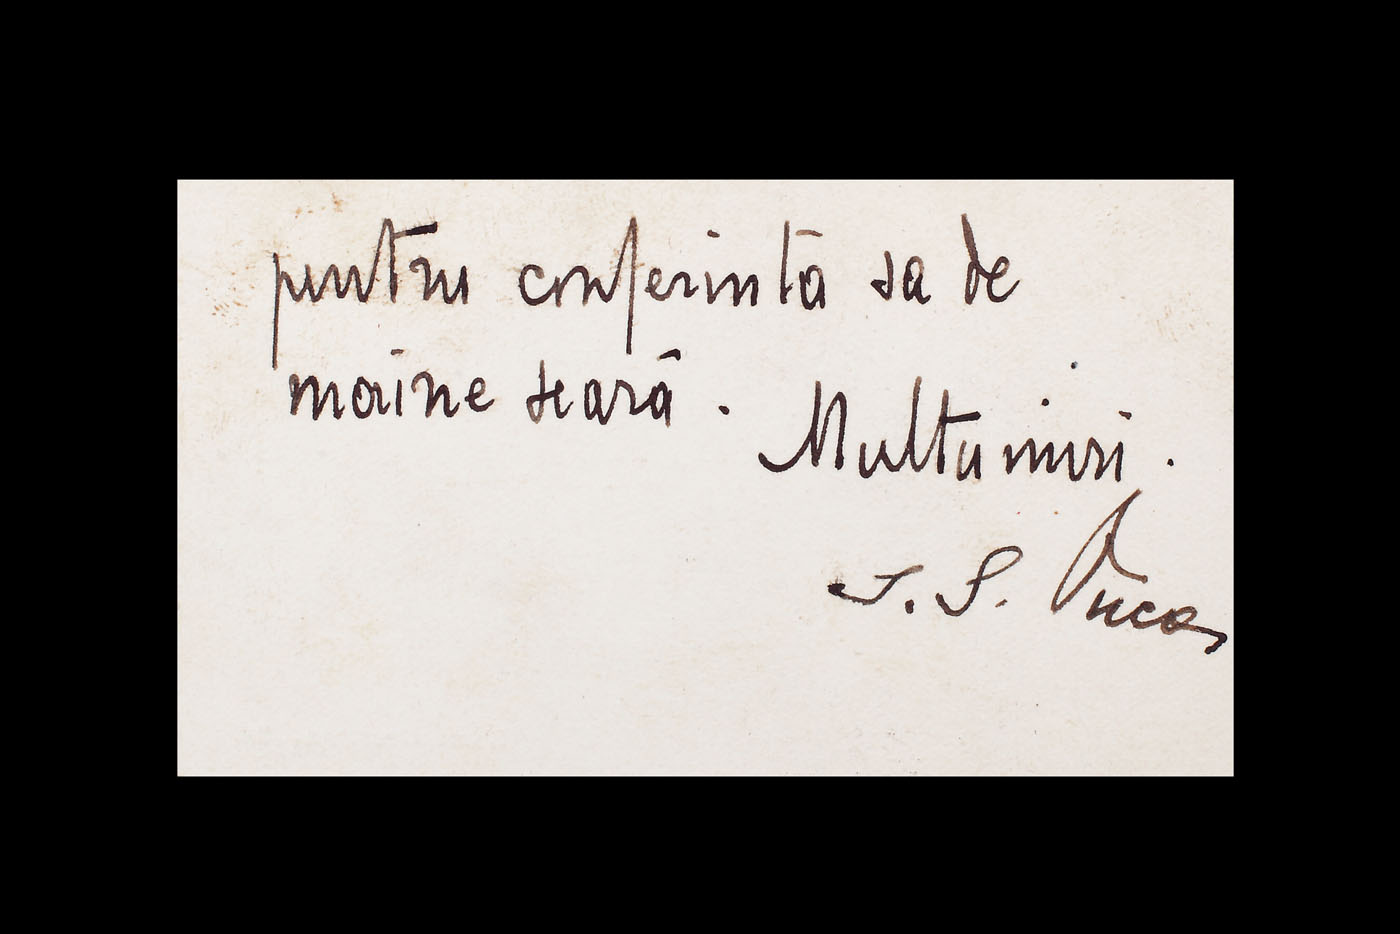 pentru conferintă sa de
maine seară.
Multumiri.
I. S.